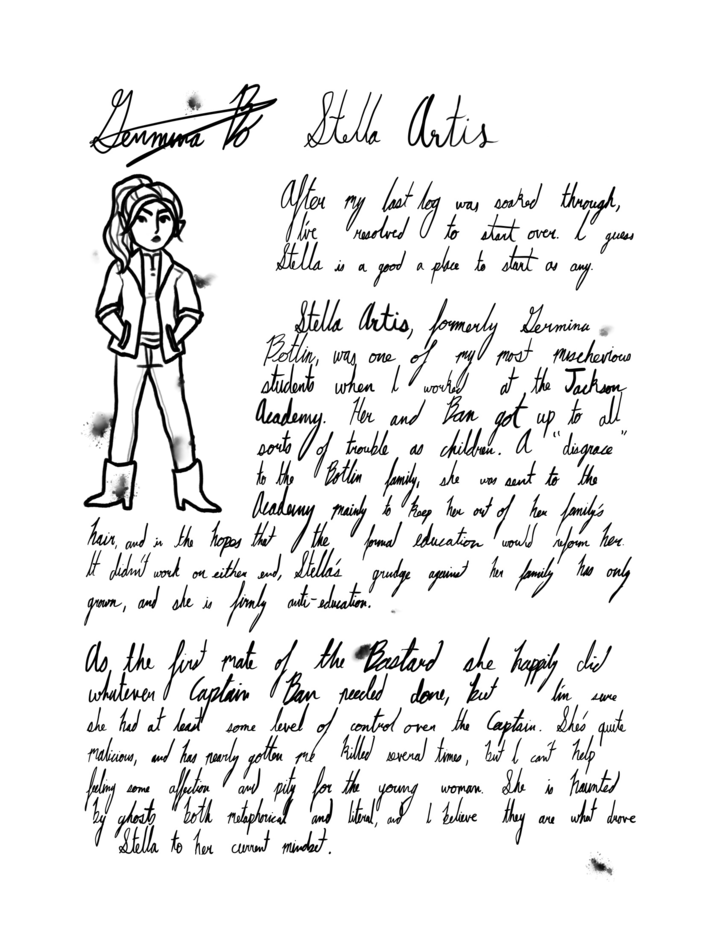 Germina Bo Stella Artis
After my last log was soaked through,
I've resolved to start over. I guess
Stella is a good a place to start as any.
Stella Artis, formerly Germina
Botlin, was one of my most mischevious
students when I worked at the Jackson
Academy. Her and Ban got up to all
sorts of trouble as children. A "disgrace"
to the Botlin family, she was sent to the
Academy mainly to keep her out of her family's
hair, and in the hopes that the formal education would reform her.
It didn't work on either end, Stella's grudge against her family has only
grown, and she is firmly anti-education.
As the first mate of the Bastard she happily did
whatever Captain Ban needed done, but I'm sure
she had at least some level of control over the Captain. She's quite
malicious, and has nearly gotten me killed several times, but I can't help
feeling some affection and pity for the young woman. She is haunted
by ghosts both metaphorical and literal, and I believe they are what drove
Stella to her current mindset.